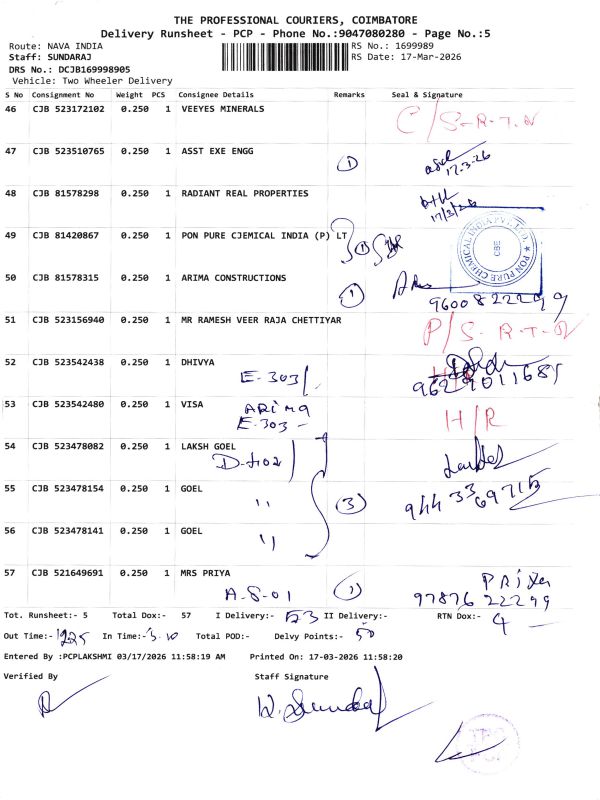 THE PROFESSIONAL COURIERS, COIMBATORE
Delivery Runsheet - PCP - Phone No.:9047080280 - Page No.:5
Route: NAVA INDIA
RS No.: 1699989
Staff: SUNDARAJ
RS Date: 17-Mar-2026
DRS No.: DCJB169998905
Vehicle: Two Wheeler Delivery
S No Consignment No Weight PCS Consignee Details Remarks Seal & Signature
46 CJB 523172102 0.250 1 VEEYES MINERALS
C/S-R-T-N
47 CJB 523510765 0.250 1 ASST EXE ENGG
1
17-3-26
48 CJB 81578298 0.250 1 RADIANT REAL PROPERTIES
17/3/26
49 CJB 81420867 0.250 1 PON PURE CJEMICAL INDIA (P) LT
1
PON PURE CHEMICAL INDIA PVT. LTD.
CBE
50 CJB 81578315 0.250 1 ARIMA CONSTRUCTIONS
1
9600822299
51 CJB 523156940 0.250 1 MR RAMESH VEER RAJA CHETTIYAR
P/S-R-T-N
52 CJB 523542438 0.250 1 DHIVYA
E-303/-
9629011685
53 CJB 523542480 0.250 1 VISA
ARIMA
E-303-
H/R
54 CJB 523478082 0.250 1 LAKSH GOEL
D-402
55 CJB 523478154 0.250 1 GOEL
"
3
9443369715
56 CJB 523478141 0.250 1 GOEL
"
57 CJB 521649691 0.250 1 MRS PRIYA
A-8-01
1
PRIYA
9787622299
Tot. Runsheet:- 5 Total Dox:- 57 I Delivery:- 53 II Delivery:- RTN Dox:- 4
Out Time:- 1225 In Time:- 3-10 Total POD:- Delvy Points:- 50
Entered By :PCPLAKSHMI 03/17/2026 11:58:19 AM Printed On: 17-03-2026 11:58:20
Verified By Staff Signature